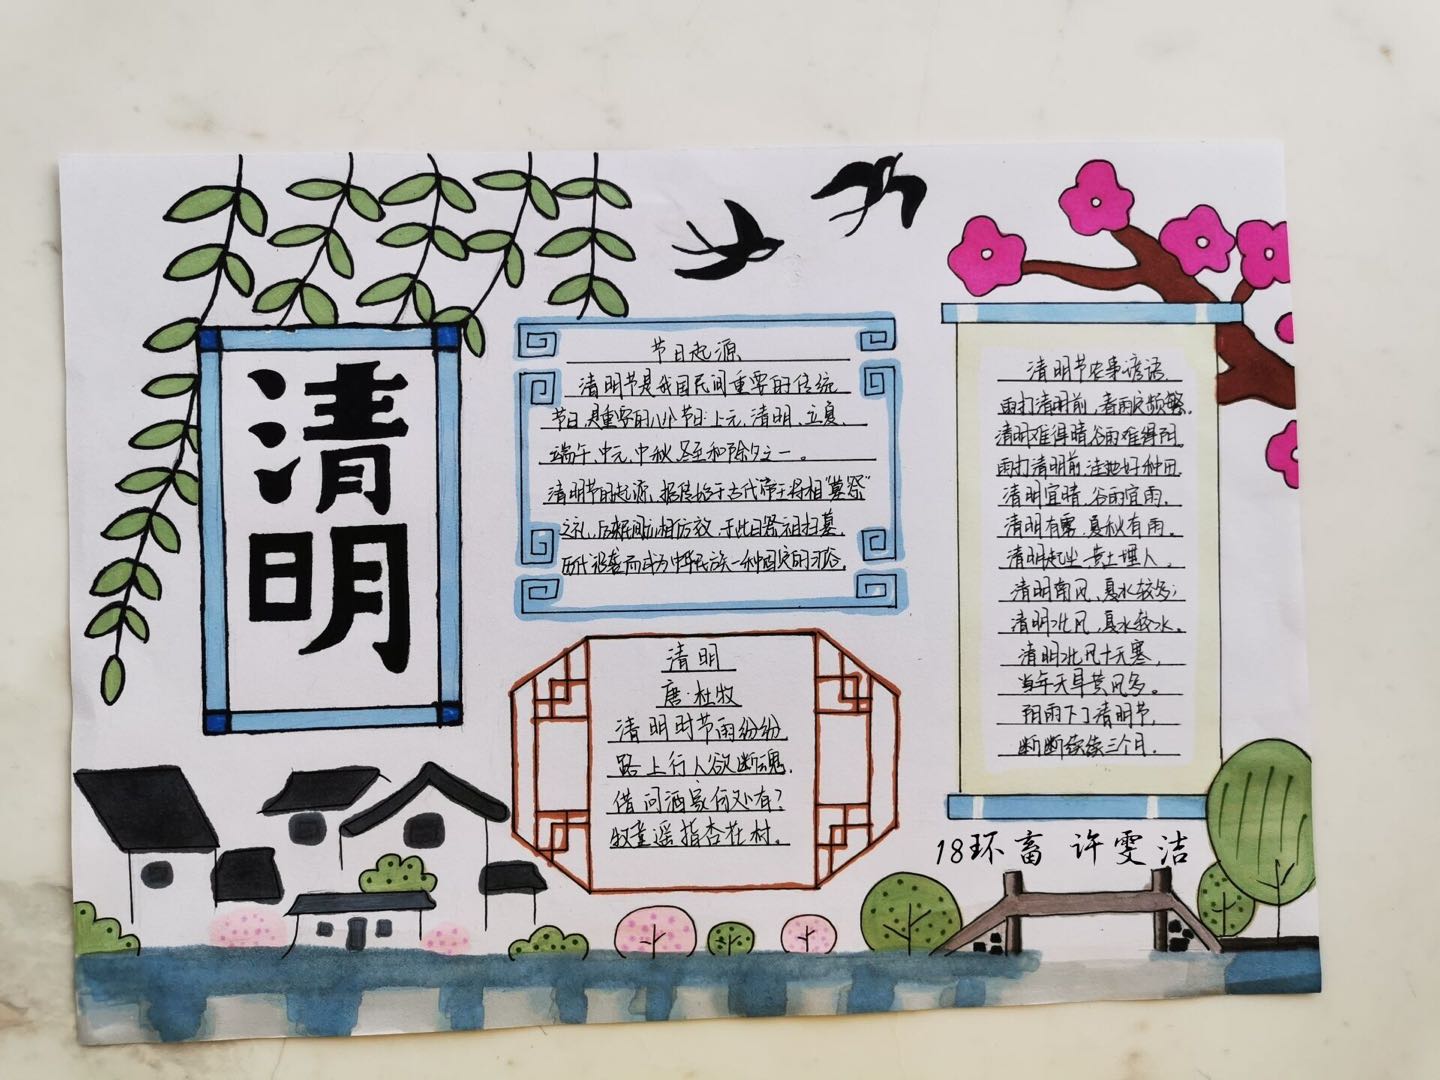 清明
节日起源
清明节是我国民间重要的传统
节日,是重要的八个节日:上元、清明、立夏、
端午、中元、中秋、冬至和除夕之一。
清明节的起源,据传始于古代帝王将相"墓祭"
之礼,后来民间亦相仿效,于此日祭祖扫墓,
历代沿袭而成为中华民族一种固定的习俗。
清明
唐·杜牧
清明时节雨纷纷,
路上行人欲断魂,
借问酒家何处有?
牧童遥指杏花村。
清明节农事谚语
雨打清明前,春雨定频繁。
清明难得晴,谷雨难得阳。
雨打清明前,洼地好种田。
清明宜晴,谷雨宜雨。
清明有雾,夏秋有雨。
清明起尘,黄土埋人。
清明南风,夏水较多;
清明北风,夏水较少。
清明北风十天寒,
当年天旱黄风多。
阴雨下了清明节,
断断续续三个月。
18环畜 许雯洁